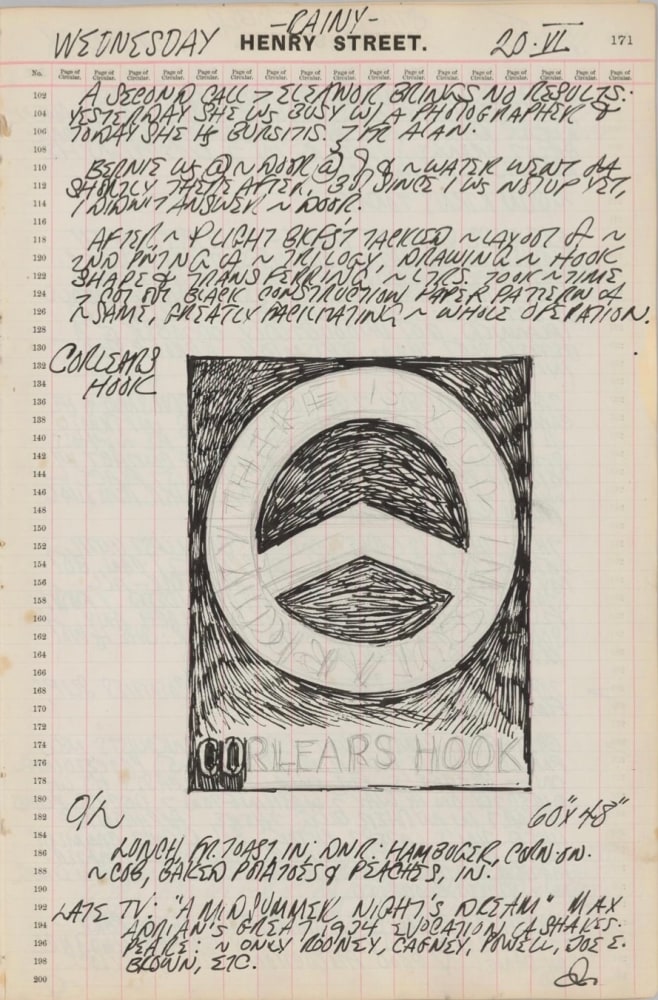 WEDNESDAY -RAINY- 20·VI
HENRY STREET. 171
No. Page of Circular. Page of Circular. Page of Circular. Page of Circular. Page of Circular. Page of Circular. Page of Circular. Page of Circular. Page of Circular. Page of Circular. Page of Circular. Page of Circular. Page of Circular. Page of Circular. Page of Circular. Page of Circular. Page of Circular.
102 A SECOND CALL > ELEANOR, BRINGS NO RESULTS:
104 YESTERDAY SHE WS BUSY W/ A PHOTOGRAPHER &
106 TODAY SHE HS BURSITIS. ALAN.
108
110 BERNIE WS @ ~ DOOR @ & ~ WATER WENT
112 SHORTLY THERE AFTER, BUT SINCE I WS NOT UP YET,
114 I DIDN'T ANSWER ~ DOOR.
116
118 AFTER ~ LIGHT BKFST TACKLED ~ LAYOUT OF ~
120 2ND PNTNG OF ~ TRILOGY, DRAWING ~ HOOK
122 SHAPE & TRANSFERRING ~ LTRS. TOOK ~ TIME
124 CUT OUT BLACK CONSTRUCTION PAPER PATTERN OF
126 ~ SAME, GREATLY FACILITATING ~ WHOLE OPERATION.
128
130
132 CORLEARS
134 HOOK
136
138
140
142
144
146
148
150
152
154
156
158
160
162
164
166
168
170
172
174
176
178
THERE IS YOUR
CORLEARS HOOK
180
182 O/L 60" X 48"
184
186 LUNCH, FR. TOAST, IN; DNR: HAMBUGER, CORN-ON-
188 ~ COB, BAKED POTATOES & PEACHES, IN.
190
192 LATE TV: "A MIDSUMMER NIGHT'S DREAM" MAX
194 GREAT 1934 EVOCATION OF SHAKES-
196 PEARE: ~ ONLY ROONEY, CAGNEY, POWELL, JOE E.
198 BROWN, ETC.
200